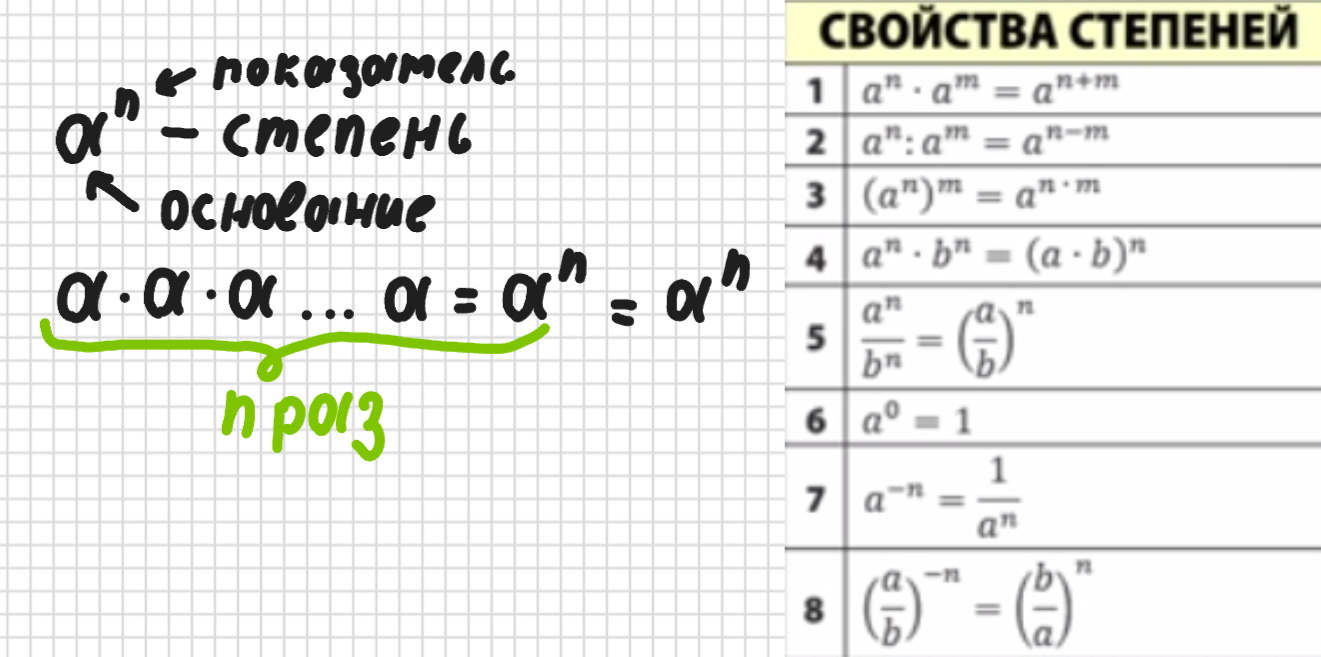 aⁿ ← показатель
– степень
↖ основание
a · a · a ... a = aⁿ = aⁿ
n раз
СВОЙСТВА СТЕПЕНЕЙ
1 aⁿ · aᵐ = aⁿ⁺ᵐ
2 aⁿ : aᵐ = aⁿ⁻ᵐ
3 (aⁿ)ᵐ = aⁿ ˙ ᵐ
4 aⁿ · bⁿ = (a · b)ⁿ
5 aⁿ/bⁿ = (a/b)ⁿ
6 a⁰ = 1
7 a⁻ⁿ = 1/aⁿ
8 (a/b)⁻ⁿ = (b/a)ⁿ